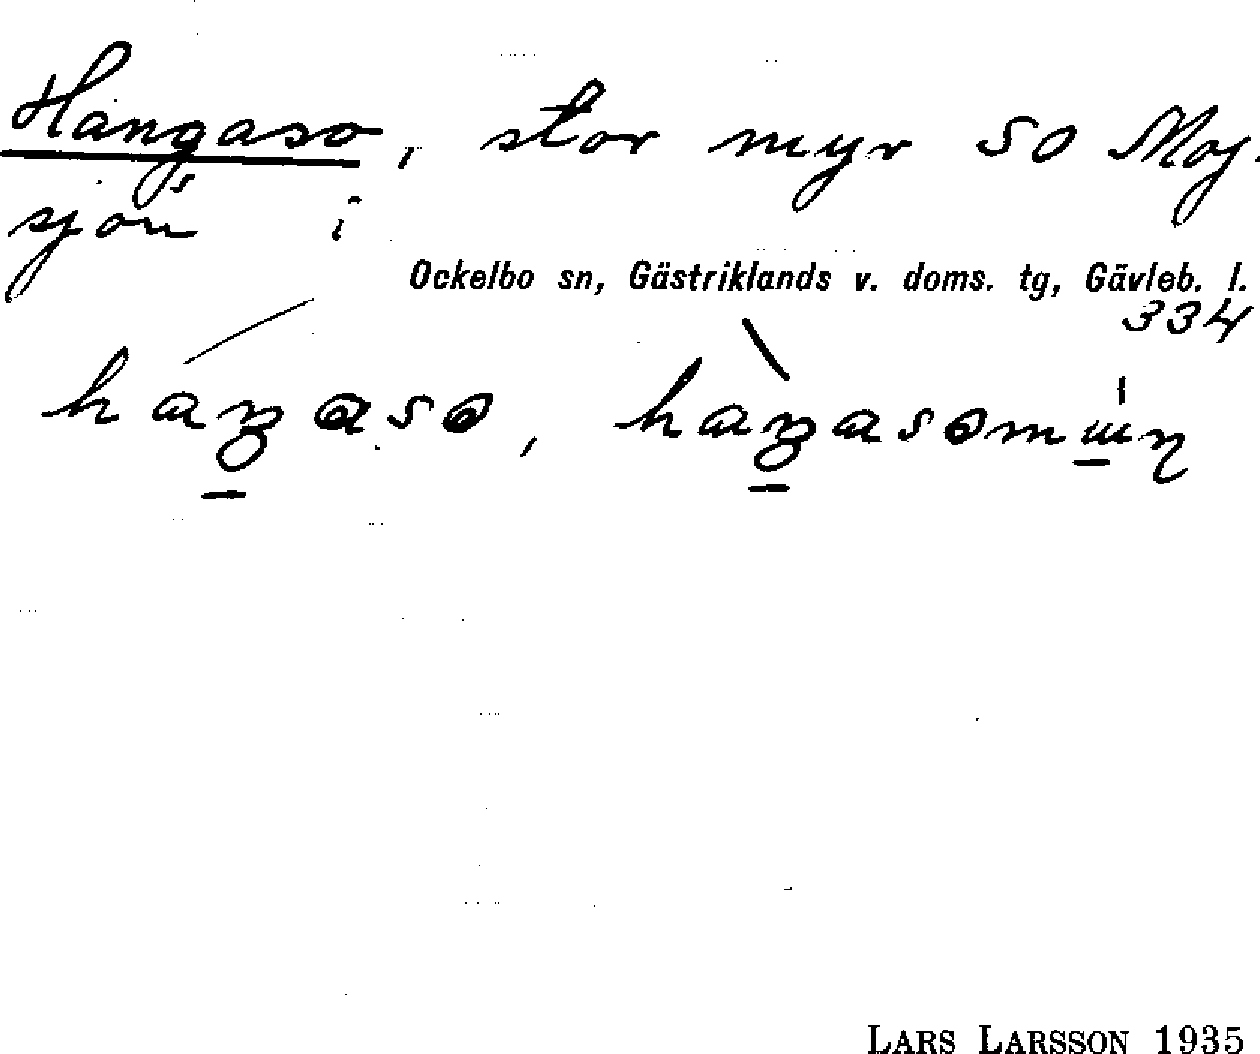 Hangaso, stor myr SO Moj-
sjön i
Ockelbo sn, Gästriklands v. doms. tg, Gävleb. l.
334
LARS LARSSON 1935